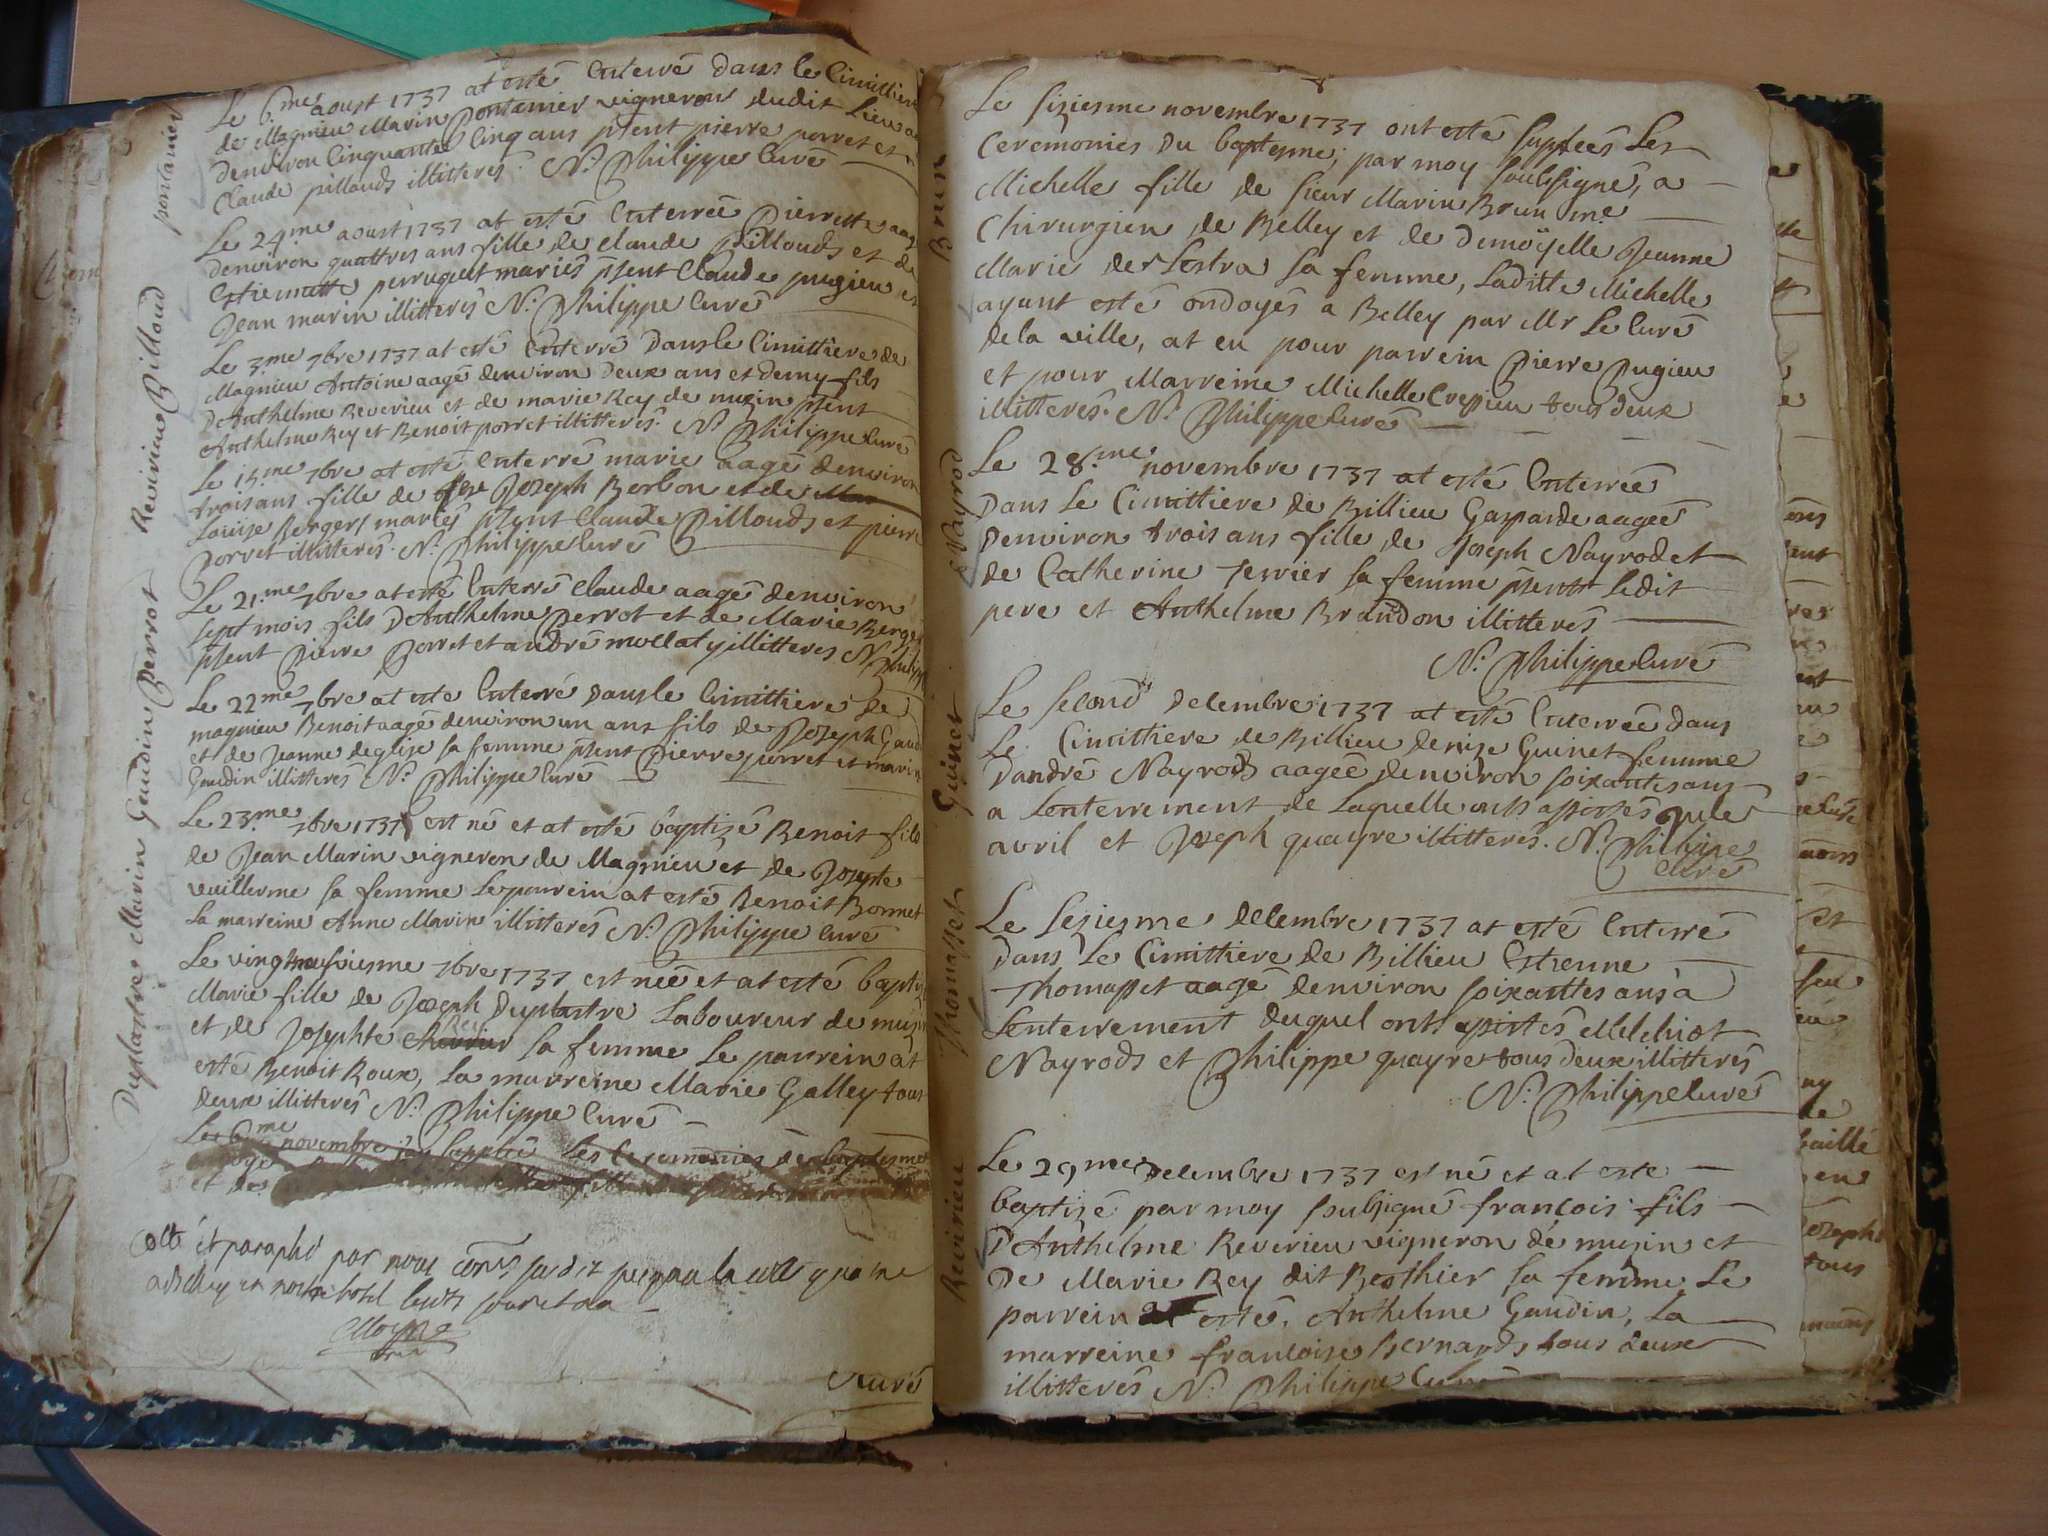 Le 6.me aoust 1737 at esté Enterré Dans le Cimittiere
de Magnieu Marin Pontanier vigneron dudit Lieu aagé
Denviron Cinquante Cinq ans pñent pierre porret et
Claude pillouds illitterés. N. Philippe Curé
pontanier
Le 24.me aoust 1737 at esté Enterreé Pierrette aagé
Denviron quattres ans fille de Claude Pillouds et de
Estiennette perruquet mariés pñent Claude pugieu et
Jean marin illitterés N. Philippe Curé
Billoud
Le 3.me 7bre 1737 at esté Enterré Dans le Cimittiere de
Magnieu Antoine aagé denviron Deux ans et demy fils
D'Anthelme Reverieu et de marie Rey de muzin pñent
Anthelme Rey et Benoit porret illitterés. N. Philippe Curé
Revirieu
Le 15.me 7bre at esté Enterré marie aagé denviron
trois ans fille de Joseph Berlon et de
Louise Berger mariés pñent Claude Pillouds et pierre
Porret illitterés. N. Philippe Curé
Le 21.me 7bre at esté Enterré Claude aagé denviron
sept mois fils D'Anthelme Perrot et de Marie Berger
pñent Pierre Porret et andré mollaty illitteres N. Philippe
Perrot
Le 22.me 7bre at esté Enterré Dans le Cimittiere de
magnieu Benoit aagé denviron un ans fils de Joseph Gaudin
et de Jeanne deglise sa femme pñent Pierre porret et marin
Gaudin illitterés N. Philippe Curé
Gaudin
Le 23.me 7bre 1737 est né et at esté baptizé Benoit fils
de Jean Marin vigneron de Magnieu et de Josepte
vuillerme sa femme Le parrein at esté Benoit Bonnet
La marreine Anne Marin illitterés N. Philippe Curé
Marin
Le vingt 7bre 1737 est néé et at esté bapti
Marie fille de Joseph Duplastre Laboureur de muzin
et de Josephte Rey sa femme Le parrein at
esté Benoit Roux, La marreine Marie Galley tous
deux illitterés N. Philippe Curé
Duplastre
Le 6.me novembre j'ai supplée Les Ceremonies de baptesme
et de
Cotté et paraphé par nous
a Belley en notre hotel
Moyne
Curé
Le siziesme novembre 1737 ont esté supplées Les
Ceremonies Du baptesme, par moy soubsigné, a
Michelle fille de sieur Marin Brun me
Chirurgien de Belley et de Demoyelle Jeanne
Marie de Lestra sa femme, Laditte Michelle
ayant esté ondoyés a Belley par Mr Le Curé
de la ville, at eu pour parrein Pierre Pugieu
et pour Marreine Michelle Crepieu tous deux
illitterés. N. Philippe Curé
Brun
Le 28.me novembre 1737 at esté Enterreé
Dans Le Cimittiere de Billieu Gasparde aageé
Denviron trois ans fille de Joseph Nayrod et
de Catherine Terrier sa femme pñent Ledit
pere et Anthelme Brandon illitterés
N. Philippe Curé
Nayrod
Le second Decembre 1737 at esté Enterreé Dans
Le Cimittiere de Billieu denize Guinet femme
D'andré Nayrods aageé denviron soixantes ans
a Lenterrement de Laquelle onts assistés Jules
avril et Joseph quayre illitterés. N. Philippe
Curé
Guinet
Le seziesme decembre 1737 at esté Enterré
Dans Le Cimittiere de Billieu Estienne
Thomasset aagé denviron soixanttes ans a
Lenterrement duquel onts assistés Melchiot
Nayrods et Philippe quayre tous deux illitterés
N. Philippe Curé
Thomasset
Le 29.me Decembre 1737 est né et at esté
baptizé par moy soubsigné francois fils
D'Anthelme Reverieu vigneron de muzin et
De Marie Rey dit Berthier sa femme Le
parrein at esté, Anthelme Gaudin, La
marreine francoise Bernards tous deux
illitterés N. Philippe Curé
Revirieu